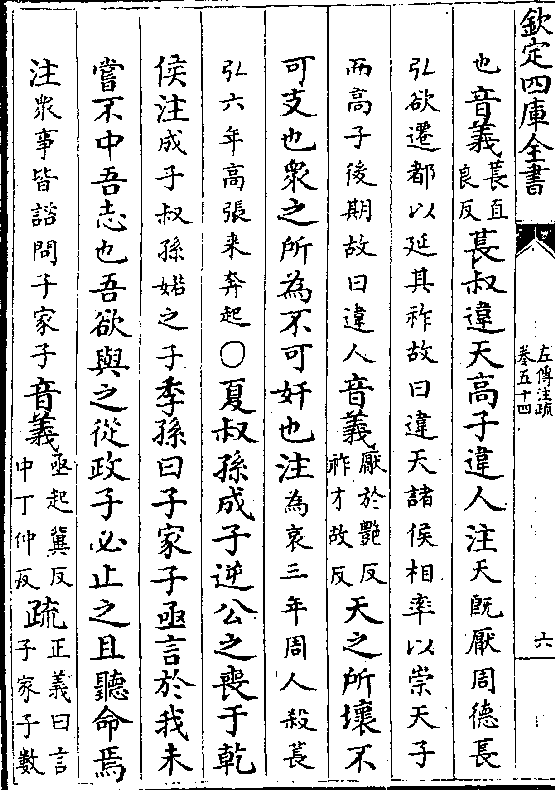 欽定四庫全書
左傳注疏
卷五十四
六
也音義萇直
良反萇叔違天高子違人注天既厭周德萇
弘欲遷都以延其祚故曰違天諸侯相率以崇天子
而高子後期故曰違人音義厭於豔反
祚才故反天之所壞不
可支也衆之所為不可奸也注為哀三年周人殺萇
弘六年高張来奔起○夏叔孫成子逆公之喪于乾
侯注成子叔孫婼之子季孫曰子家子亟言於我未
嘗不中吾志也吾欲與之從政子必止之且聽命焉
注衆事皆諮問子家子音義亟起冀反
中丁仲反疏正義曰言
子家子數